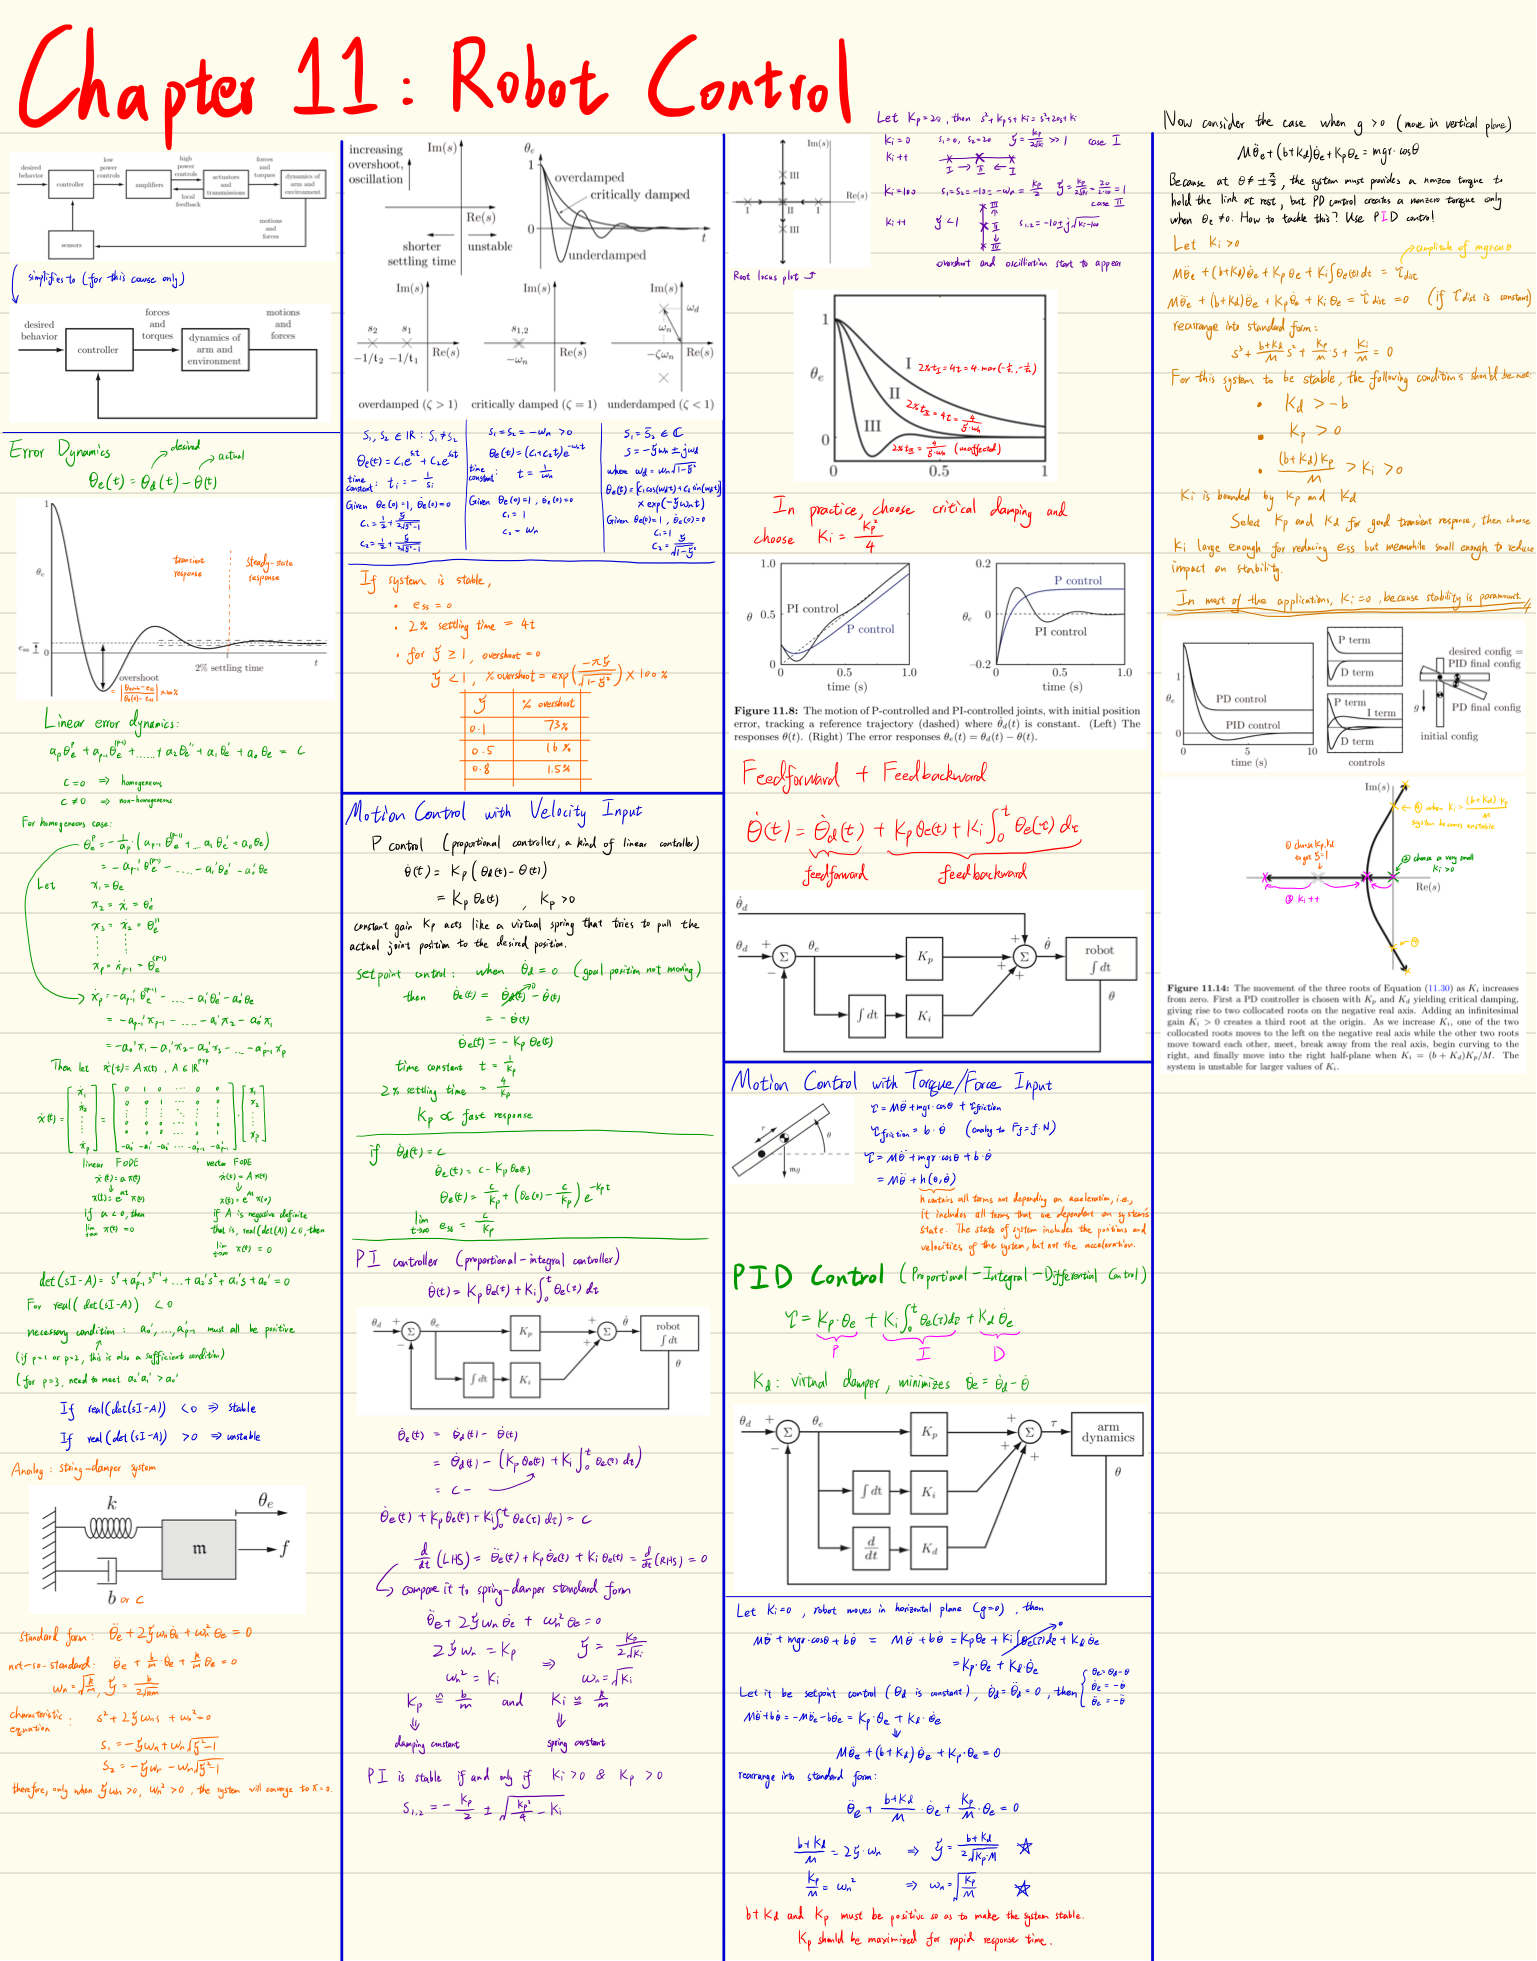 Chapter 11: Robot Control
desired behavior
controller
low power controls
amplifiers
high power controls
local feedback
actuators and transmissions
forces and torques
dynamics of arm and environment
motions and forces
sensors
simplifies to (for this course only)
desired behavior
controller
forces and torques
dynamics of arm and environment
motions and forces
Error Dynamics
desired
actual
θe(t) = θd(t) - θ(t)
1
θe
ess
0
transient response
steady-state response
overshoot
2% settling time
t
Linear error dynamics:
c=0 ⇒ homogeneous
c≠0 ⇒ non-homogeneous
For homogeneous case:
Let x1 = θe
x2 = ẋ1 = θe'
x3 = ẋ2 = θe''
Then let ẋ(t) = Ax(t), A ∈ ℝ^p×p
linear FODE
ẋ(t) = a x(t)
x(t) = e^at x(0)
if a<0, then
lim x(t) = 0
vector FODE
ẋ(t) = A x(t)
x(t) = e^At x(0)
if A is negative definite
that is, real(det(A)) <0, then
lim x(t) = 0
For real(det(sI-A)) <0
necessary condition: a0', ..., a'p-1 must all be positive
(if p=1 or p=2, this is also a sufficient condition)
(for p=3, need to meet a2'a1' > a0'
If real(det(sI-A)) <0 ⇒ stable
If real(det(sI-A)) >0 ⇒ unstable
Analog: string-damper system
k
θe
m
f
b or c
standard form: θ̈e + 2ζωnθ̇e + ωn²θe = 0
not-so-standard: θ̈e + b/m θ̇e + k/m θe = 0
ωn = √(k/m), ζ = b/(2√(km))
characteristic equation: s² + 2ζωns + ωn² = 0
s1 = -ζωn + ωn√(ζ²-1)
s2 = -ζωn - ωn√(ζ²-1)
therefore, only when ζωn >0, ωn² >0, the system will converge to x=0.
increasing overshoot, oscillation
Im(s)
Re(s)
shorter settling time
unstable
θe
1
0
overdamped
critically damped
underdamped
t
Im(s)
s2
s1
-1/t2
-1/t1
Re(s)
overdamped (ζ > 1)
Im(s)
s1,2
-ωn
Re(s)
critically damped (ζ = 1)
Im(s)
ωd
ωn
-ζωn
Re(s)
underdamped (ζ < 1)
s1, s2 ∈ ℝ : s1 ≠ s2
θe(t) = c1e^s1t + c2e^s2t
time constant: ti = -1/si
Given θe(0)=1, θ̇e(0)=0
s1 = s2 = -ωn >0
θe(t) = (c1+c2t)e^-ωnt
time constant: t = 1/ωn
Given θe(0)=1, θ̇e(0)=0
c1 = 1
c2 = ωn
s1 = s̄2 ∈ ℂ
s = -ζωn ± jωd
where ωd = ωn√(1-ζ²)
θe(t) = [c1cos(ωdt) + c2sin(ωdt)]
× exp(-ζωnt)
Given θe(0)=1, θ̇e(0)=0
c1=1
c2 = ζ/√(1-ζ²)
If system is stable,
• ess = 0
• 2% settling time = 4t
• for ζ ≥ 1, overshoot = 0
ζ < 1, % overshoot = exp(-πζ/√(1-ζ²)) × 100%
ζ % overshoot
0.1 73%
0.5 16%
0.8 1.5%
Motion Control with Velocity Input
P control (proportional controller, a kind of linear controller)
θ̇(t) = Kp(θd(t) - θ(t))
= Kp θe(t), Kp >0
constant gain Kp acts like a virtual spring that tries to pull the
actual joint position to the desired position.
setpoint control: when θ̇d = 0 (goal position not moving)
then θ̇e(t) = θ̇d(t) - θ̇(t)
= -θ̇(t)
θ̇e(t) = -Kp θe(t)
time constant t = 1/Kp
2% settling time = 4/Kp
Kp ∝ fast response
if θ̇d(t) = c
θ̇e(t) = c - Kp θe(t)
θe(t) = c/Kp + (θe(0) - c/Kp) e^-Kpt
lim t→∞ ess = c/Kp
PI controller (proportional-integral controller)
θ̇(t) = Kp θe(t) + Ki∫0^t θe(τ) dτ
θd
+
−
Σ
θe
Kp
∫dt
Ki
+
+
Σ
θ̇
robot ∫dt
θ
θ̇e(t) = θ̇d(t) - θ̇(t)
= θ̇d(t) - (Kp θe(t) + Ki∫0^t θe(τ) dτ)
= c -
θ̇e(t) + Kp θe(t) + Ki∫0^t θe(τ) dτ) = c
d/dt (LHS) = θ̈e(t) + Kpθ̇e(t) + Ki θe(t) = d/dt (RHS) = 0
compare it to spring-damper standard form
θ̈e + 2ζωnθ̇e + ωn²θe = 0
2ζωn = Kp ⇒ ζ = Kp/(2√Ki)
ωn² = Ki ωn = √Ki
Kp ≌ b/m and Ki ≌ k/m
damping constant
spring constant
PI is stable if and only if Ki >0 & Kp >0
s1,2 = -Kp/2 ± √(Kp²/4 - Ki)
Im(s)
III
Re(s)
I
II
I
III
Root locus plot
Let Kp = 20, then s² + Kps + Ki = s² + 20s + Ki
Ki = 0 s1=0, s2=20 ζ = Kp/(2√Ki) >> 1 case I
Ki ++
Ki = 100 s1 = s2 = -10 = -ωn = Kp/2 ζ = Kp/(2√Ki) = 20/(2·10) = 1
case II
Ki ++ ζ < 1 s1,2 = -10 ± j√(Ki-100)
overshoot and oscillation start to appear
1
θe
0
I
II
III
0
0.5
1
In practice, choose critical damping and
choose Ki = Kp²/4
1.0
θ
0.5
0
PI control
P control
0.5
1.0
time (s)
0.2
θe
0
−0.2
P control
PI control
0
0.5
1.0
time (s)
Figure 11.8: The motion of P-controlled and PI-controlled joints, with initial position
error, tracking a reference trajectory (dashed) where θ̇d(t) is constant. (Left) The
responses θ(t). (Right) The error responses θe(t) = θd(t) − θ(t).
Feedforward + Feedbackward
θ̇(t) = θ̇d(t) + Kpθe(t) + Ki∫0^t θe(τ) dτ
feedforward
feedbackward
θ̇d
θd
+
−
Σ
θe
Kp
∫dt
Ki
+
+
+
Σ
θ̇
robot ∫dt
θ
Motion Control with Torque/Force Input
τ
θ
mg
τ = Mθ̈ + mgr·cosθ + τfriction
τfriction = b·θ̇ (analog to Ff = f·N)
τ = Mθ̈ + mgr·cosθ + b·θ̇
= Mθ̈ + h(θ,θ̇)
h contains all terms not depending on acceleration, i.e.,
it includes all terms that are dependent on system's
state. The state of system includes the positions and
velocities of the system, but not the acceleration.
PID Control (Proportional-Integral-Differential Control)
τ = Kp·θe + Ki∫0^t θe(τ)dτ + Kd θ̇e
P I D
Kd: virtual damper, minimizes θ̇e = θ̇d - θ̇
θd
+
−
Σ
θe
Kp
∫dt
Ki
d/dt
Kd
+
+
+
Σ
τ
arm dynamics
θ
Let Ki=0, robot moves in horizontal plane (g=0), then
Mθ̈ + mgr·cosθ + bθ̇ = Mθ̈ + bθ̇ = Kpθe + Ki∫θe(τ)dτ + Kd θ̇e
= Kp·θe + Kd·θ̇e
Let it be setpoint control (θd is constant), θ̇d = θ̈d = 0, then
θe = θd - θ
θ̇e = -θ̇
θ̈e = -θ̈
Mθ̈ + bθ̇ = -Mθ̈e - bθ̇e = Kp·θe + Kd·θ̇e
Mθ̈e + (b+Kd)θ̇e + Kp·θe = 0
rearrange into standard form:
θ̈e + (b+Kd)/M·θ̇e + Kp/M·θe = 0
(b+Kd)/M = 2ζ·ωn ⇒ ζ = (b+Kd)/(2√(Kp·M))
Kp/M = ωn² ⇒ ωn = √(Kp/M)
b+Kd and Kp must be positive so as to make the system stable.
Kp should be maximized for rapid response time.
Now consider the case when g >0 (move in vertical plane)
Mθ̈e + (b+Kd)θ̇e + Kpθe = mgr·cosθ
Because at θ ≠ ±π/2, the system must provides a nonzero torque to
hold the link at rest, but PD control creates a nonzero torque only
when θe ≠ 0. How to tackle this? Use PID control!
Let Ki >0
Mθ̈e + (b+Kd)θ̇e + Kpθe + Ki∫θe(t)dt = τdist
rearrange into standard form:
s³ + (b+Kd)/M s² + Kp/M·s + Ki/M = 0
For this system to be stable, the following conditions should be met:
• Kd > -b
• Kp > 0
• (b+Kd)Kp/M > Ki > 0
Ki is bounded by Kp and Kd
Select Kp and Kd for good transient response, then choose
Ki large enough for reducing ess but meanwhile small enough to reduce
impact on stability.
In most of the applications, Ki = 0, because stability is paramount.
1
θe
0
PD control
PID control
0
5
10
time (s)
P term
D term
P term
I term
D term
controls
desired config =
PID final config
g
PD final config
initial config
Im(s)
Re(s)
① choose Kp, Kd to get ζ=1
② choose a very small Ki >0
③ Ki ++
④ when Ki = (b+Kd)Kp/M
system becomes unstable
Figure 11.14: The movement of the three roots of Equation (11.30) as Ki increases
from zero. First a PD controller is chosen with Kp and Kd yielding critical damping,
giving rise to two collocated roots on the negative real axis. Adding an infinitesimal
gain Ki > 0 creates a third root at the origin. As we increase Ki, one of the two
collocated roots moves to the left on the negative real axis while the other two roots
move toward each other, meet, break away from the real axis, begin curving to the
right, and finally move into the right half-plane when Ki = (b + Kd)Kp/M. The
system is unstable for larger values of Ki.